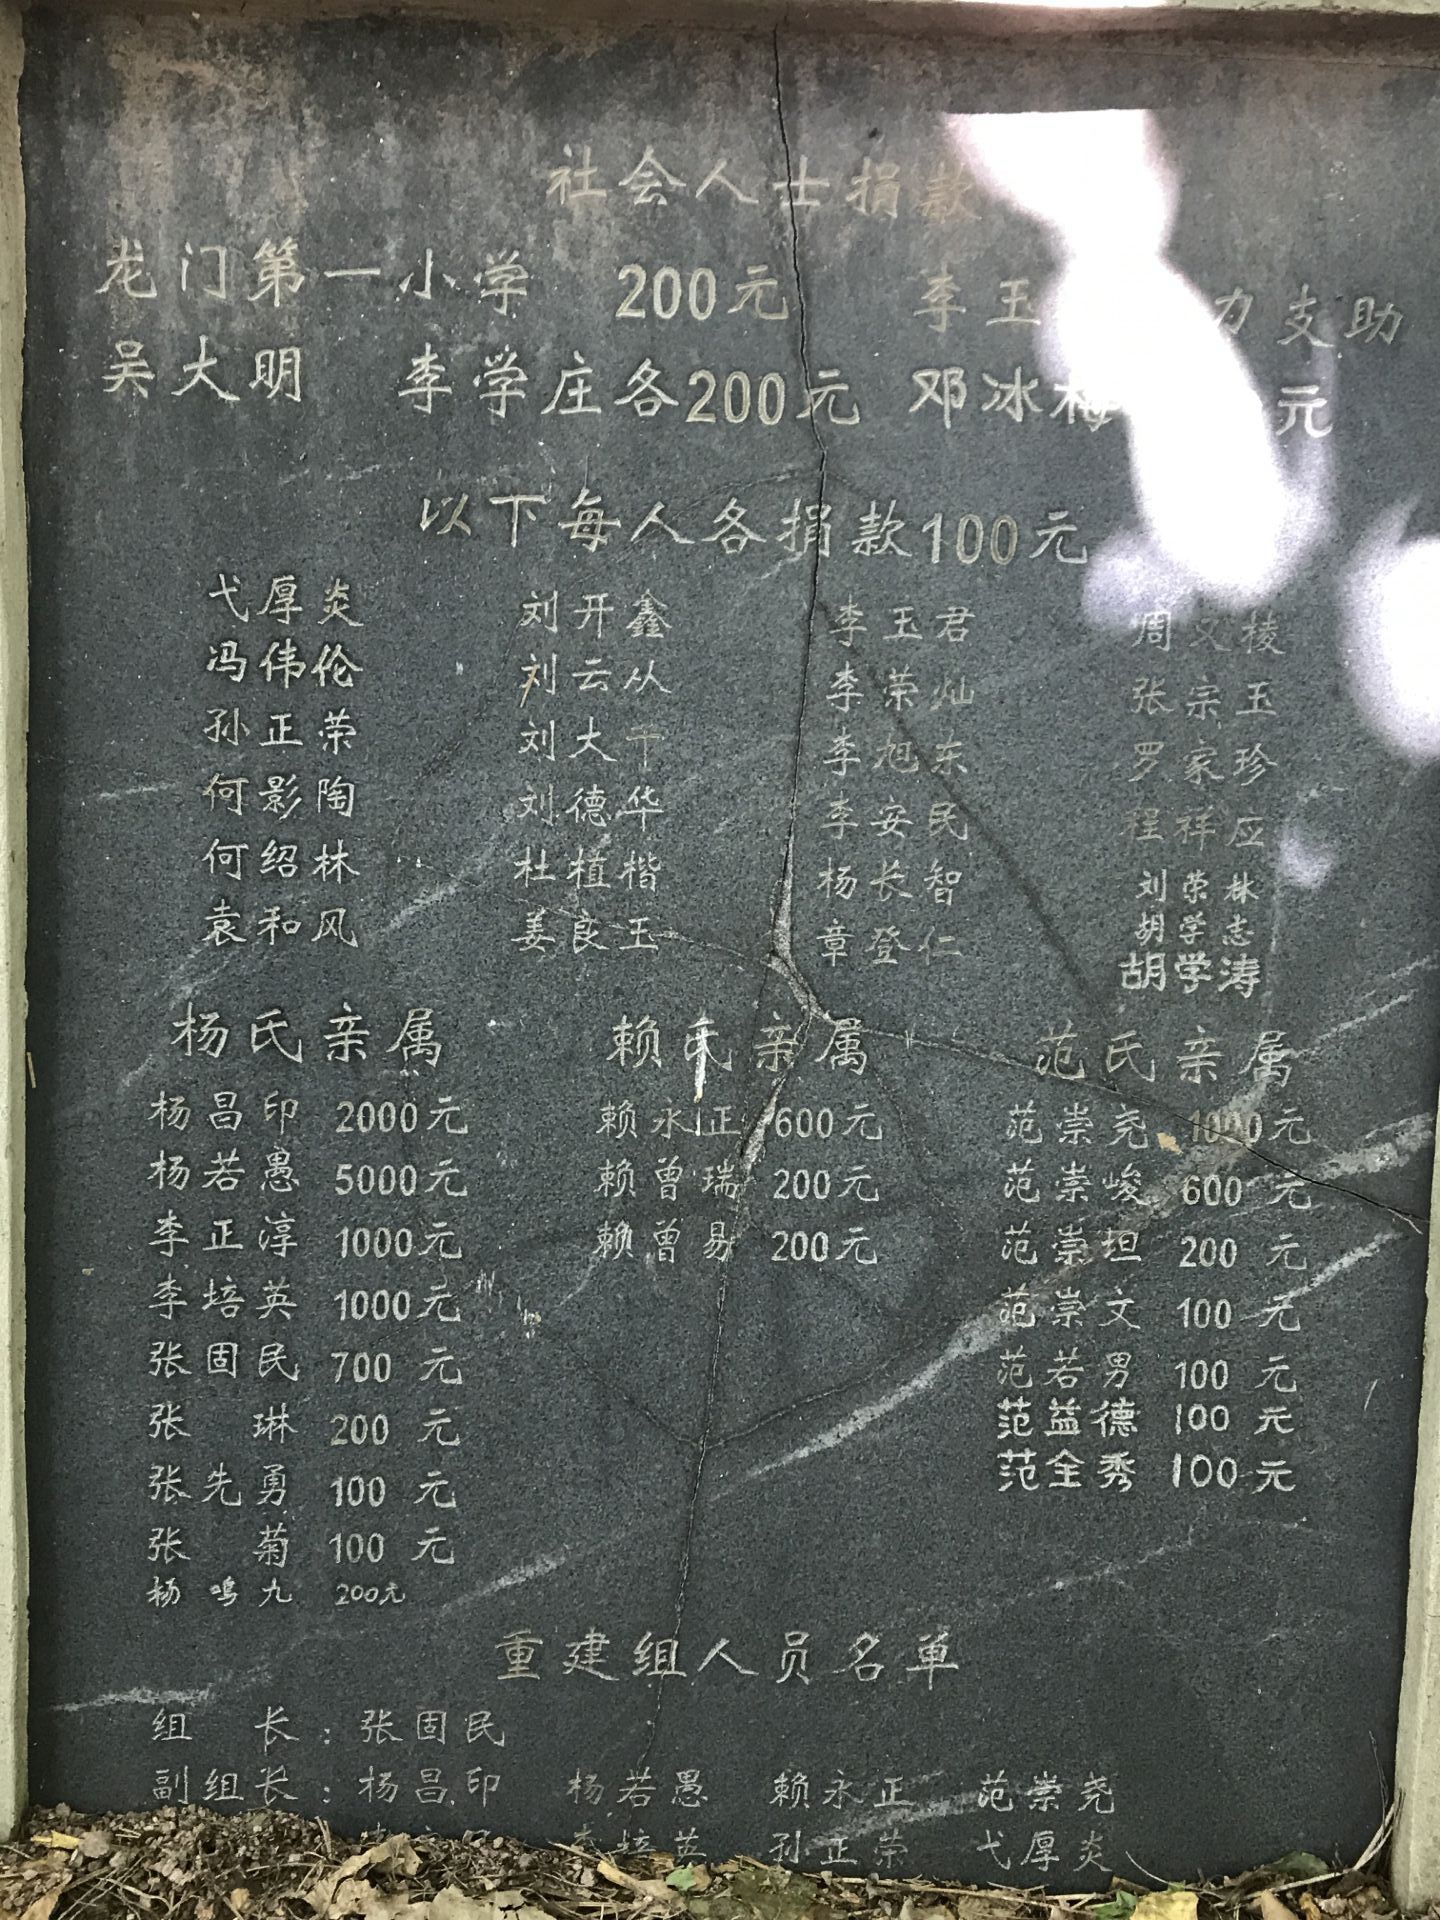 社会人士捐款
龙门第一小学 200元 李玉 力支助
吴大明 李学庄各200元 邓冰梅 元
以下每人各捐款100元
弋厚炎 刘开鑫 李玉君 周文棱
冯伟伦 刘云从 李荣灿 张宗玉
孙正荣 刘大千 李旭东 罗家珍
何影陶 刘德华 李安民 程祥应
何绍林 杜植楷 杨长智 刘荣林
袁和风 姜良玉 章登仁 胡学志
胡学涛
杨氏亲属 赖氏亲属 范氏亲属
杨昌印 2000元 赖永正 600元 范崇尧 1000元
杨若愚 5000元 赖曾瑞 200元 范崇峻 600元
李正淳 1000元 赖曾易 200元 范崇坦 200元
李培英 1000元 范崇文 100元
张固民 700元 范若男 100元
张琳 200元 范益德 100元
张先勇 100元 范全秀 100元
张菊 100元
杨鸣九 200元
重建组人员名单
组长：张固民
副组长：杨昌印 杨若愚 赖永正 范崇尧
李培英 孙正荣 弋厚炎